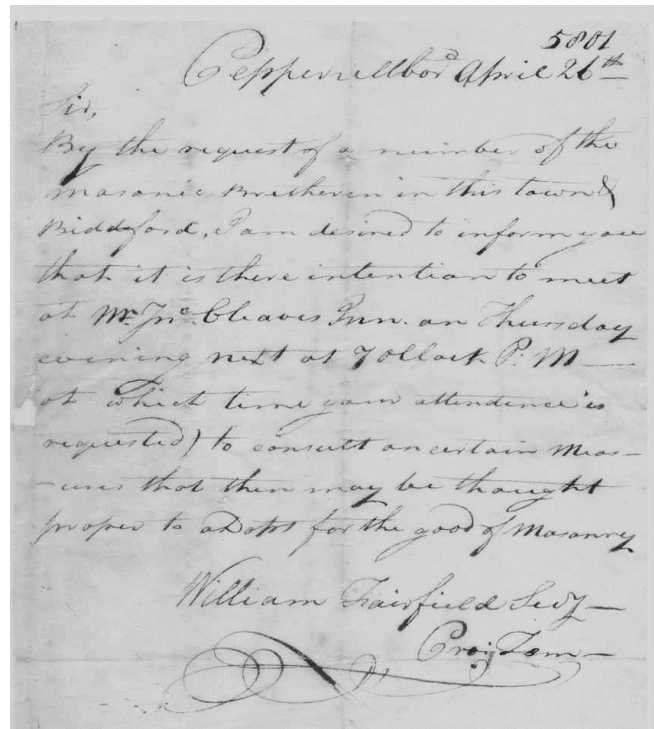 5801
Pepperrellboro' April 26th
Sir,
By the request of a number of the
masonic Bretherin in this town &
Biddeford, I am desired to inform you
that it is there intention to meet
at Mr. Jno. Cleaves Inn. on Thursday
evening next at 7 oClock P: M
at which time your attendence is
requested) to consult on certain Meas-
-ures that then may be thought
proper to adopt for the good of Masonry
William Fairfield Secy
Pro; Tem